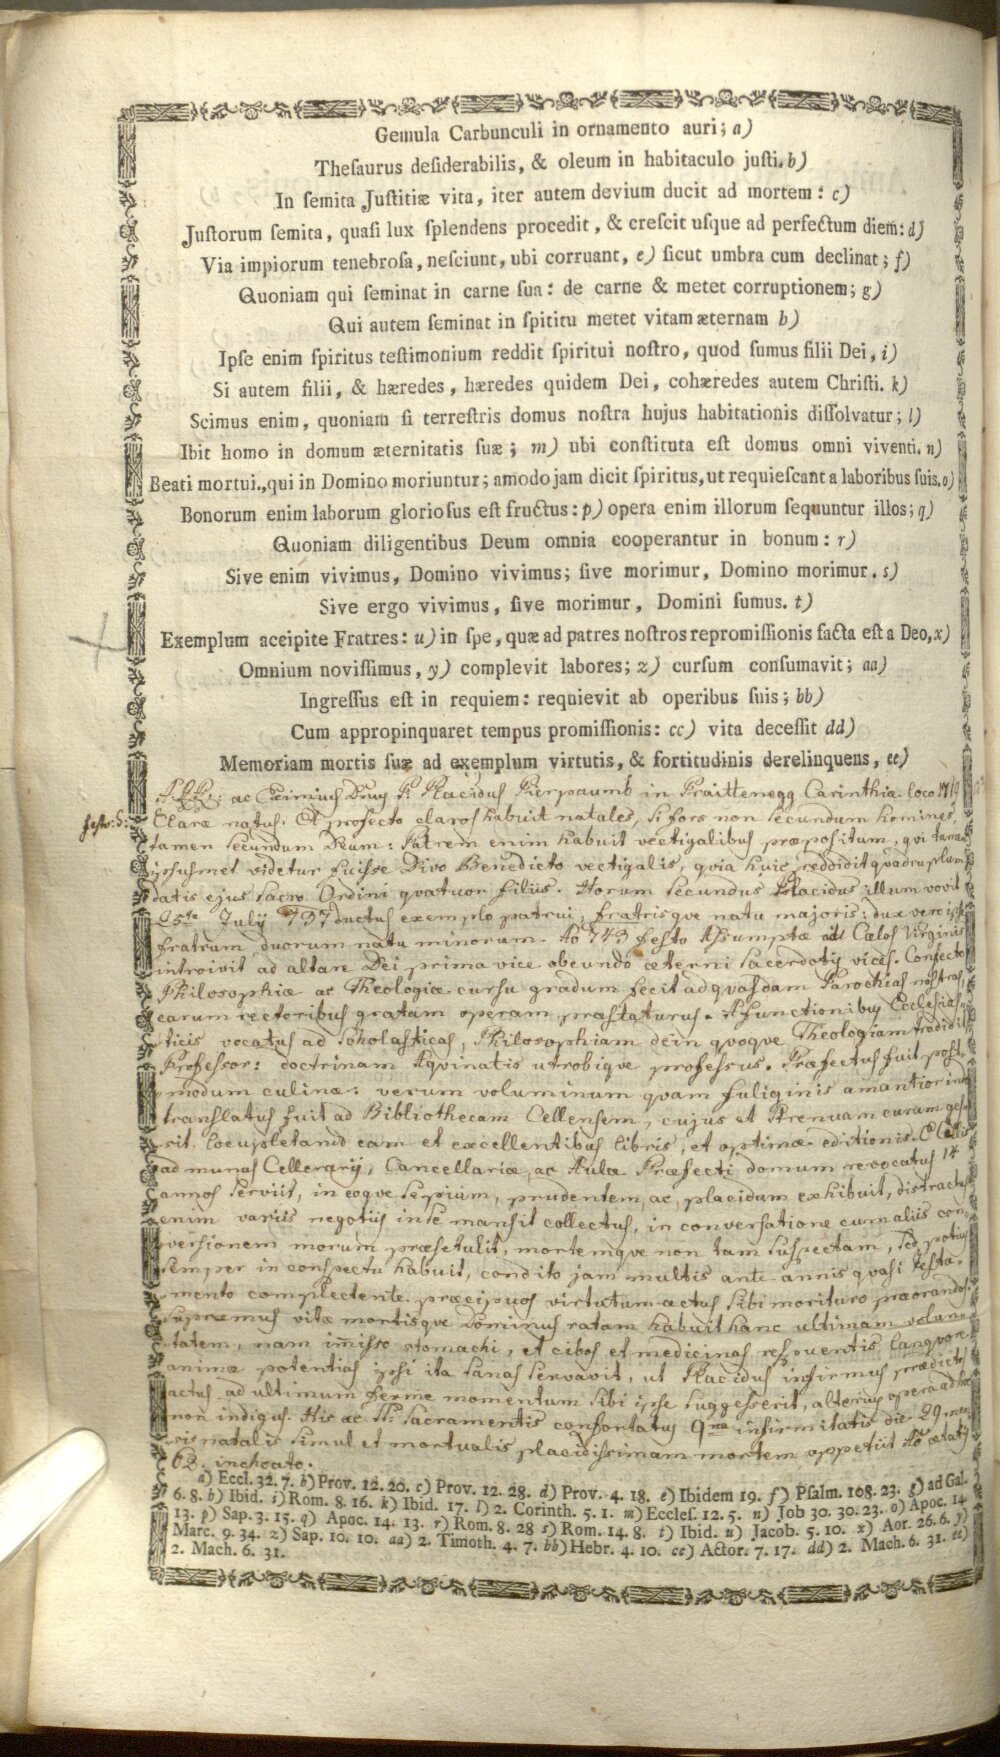 Gemula Carbunculi in ornamento auri; a)
Theſaurus deſiderabilis, & oleum in habitaculo juſti. b)
In ſemita Juſtitiæ vita, iter autem devium ducit ad mortem: c)
Juſtorum ſemita, quaſi lux ſplendens procedit, & creſcit uſque ad perfectum diem: d)
Via impiorum tenebroſa, neſciunt, ubi corruant, e) ſicut umbra cum declinat; f)
Quoniam qui ſeminat in carne ſua: de carne & metet corruptionem; g)
Qui autem ſeminat in ſpititu metet vitam æternam h)
Ipſe enim ſpiritus teſtimonium reddit ſpiritui noſtro, quod ſumus filii Dei, i)
Si autem filii, & hæredes, hæredes quidem Dei, cohæredes autem Chriſti. k)
Scimus enim, quoniam ſi terreſtris domus noſtra hujus habitationis diſſolvatur; l)
Ibit homo in domum æternitatis ſuæ; m) ubi conſtituta eſt domus omni viventi. n)
Beati mortui., qui in Domino moriuntur; amodo jam dicit ſpiritus, ut requieſcant a laboribus ſuis. o)
Bonorum enim laborum glorioſus eſt fructus: p) opera enim illorum ſequuntur illos; q)
Quoniam diligentibus Deum omnia cooperantur in bonum: r)
Sive enim vivimus, Domino vivimus; ſive morimur, Domino morimur. s)
Sive ergo vivimus, ſive morimur, Domini ſumus. t)
Exemplum aceipite Fratres: u) in ſpe, quæ ad patres noſtros repromiſſionis facta eſt a Deo, x)
Omnium noviſſimus, y) complevit labores; z) curſum conſumavit; aa)
Ingreſſus eſt in requiem: reqnievit ab operibus ſuis; bb)
Cum appropinquaret tempus promiſſionis: cc) vita deceſſit dd)
Memoriam mortis ſuæ ad exemplum virtutis, & fortitudinis derelinquens, ee)
ac Eximius P. Placidus Pierpaumb in Fraittenegg Carinthiæ loco 1719
Claræ natus. Et profecto claros habuit natales, si fors non secundum homines,
tamen secundum Deum: Patrem enim habuit vectigalibus præpositum, qvi tamen
ipsusmet videtur fuisse Divo Benedicto vectigalis, qvia huic reddidit qvadruplum
datis ejus sacro Ordini qvatuor filiis. Horum secundus Placidus illum vovit
25te July 737 ductus exemplo patrui, fratrisqve natu majoris: dux vero ipse
fratrum duorum natu minorum. Ao 743 festo Assumptæ ad Cœlos Virginis
introivit ad altare Dei prima vice obeundo æterni Sacerdotis vices. Confecto
Philosophiæ ac Theologiæ cursu gradum fecit ad qvasdam Parochias nostras,
earum rectoribus gratam operam præstaturus. A functionibus Ecclesias-
ticis vocatus ad Scholasticas, Philosophiam dein qvoqve Theologiam tradidit
Professor: doctrinam Aqvinatis utrobiqve professus. Præfectus fuit post-
modum culinæ: verum voluminum qvam fuliginis amantior inde
translatus fuit ad Bibliothecam Cellensem, cujus et strenuam curam ges-
sit, locupletando eam et excellentibus libris, et optimæ editionis.
ad munas Cellerarij, Cancellariæ, ac Aulæ Præfecti domum revocatus 14
annos serviit, in eoqve se pium, prudentem, ac placidum exhibuit, distractus
enim variis negotiis in se mansit collectus, in conversatione cum aliis con-
versionem morum præsetulit, mortemqve non tam suspectam, sed potius
semper in conspectu habuit, condito jam multis ante annis qvasi testa-
mento complectente præcipuos virtutum actus sibi morituro præorandos.
Supremus vitæ mortisqve Dominus ratam habuit hanc ultimam volun-
tatem, nam im̄isso stomachi, et cibos et medicinas respuentis langvore
animæ potentias ipsi ita sanas servavit, ut Placidus infirmus prædictos
actus ad ultimum ferme momentum sibi ipse suggesserit, alterius opera ad hoc
non indigus. His ac SS. Sacramentis confortatus 9na infirmitatis die 29 men-
sis natalis simul et mortualis placidissimam mortem oppetiit Ao ætatis
62. inchoato.
a) Eccl. 32. 7. b) Prov. 12. 20. c) Prov. 12. 28. d) Prov. 4. 18. e) Ibidem 19. f) Pſalm. 108. 23. g) ad Gal.
6. 8. h) Ibid. i) Rom. 8. 16. k) Ibid. 17. l) 2. Corinth. 5. 1. m) Eccleſ. 12. 5. n) Job 30. 30. 23. o) Apoc. 14
13. p) Sap. 3. 15. q) Apoc. 14. 13. r) Rom. 8. 28 s) Rom. 14. 8. t) Ibid. u) Jacob. 5. 10. x) Aor. 26. 6. y)
Marc. 9. 34. z) Sap. 10. 10. aa) 2. Timoth. 4. 7. bb) Hebr. 4. 10. cc) Actor. 7. 17. dd) 2. Mach. 6. 31. ee)
2. Mach. 6. 31.